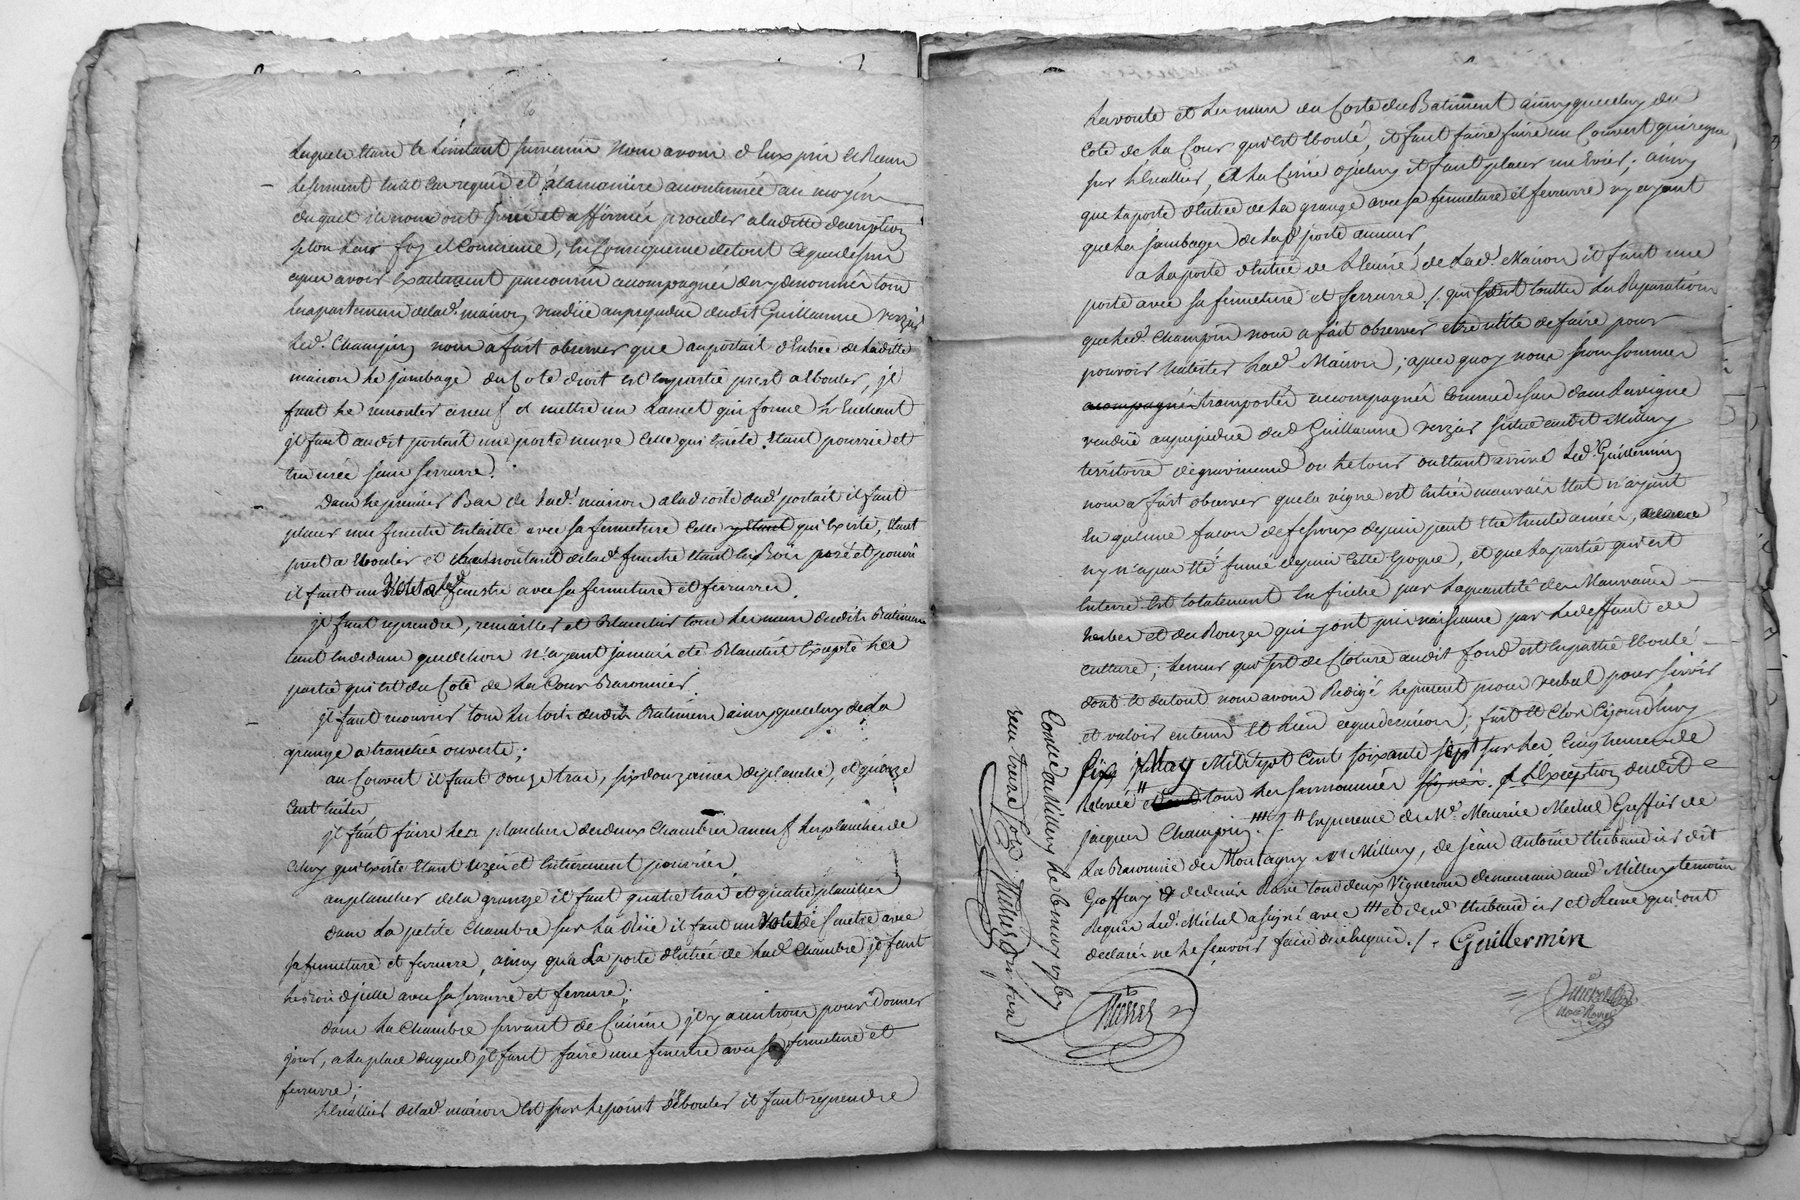 Lesquels étant à l'instant survenus nous avons d'eux pris et Receu
le serment en tel cas requis et à la maniere accoutumée au moyen
duquel ils nous ont juré et affirmés proceder a laditte description
selon leurs foy et conscience, en Consequence de tout ce que dessus
apres avoir Exactement parcourru accompagnés des susnommés tous
les apartemens de lad. maison vendüe au prejudice dudit Guillaume Verzás
led. Champin nous a fait observer que au portail d'Entrée de laditte
maison le jambage du Coté droit est en partie prest a Ebouler, jl
faut le remonter à neuf et mettre un qui forme le
jl faut audit portail une porte neuve Celle qui Existe Etant pourrie et
tres usée sans serrure.
Dans le premier Bas de lad. maison a la droite dud. portail il faut
placer une fenetre Entaille avec sa fermeture Celle qui Existe, Etant
prest a Ebouler et les montans de lad. fenetre étant en Bois pozé et pourri
il faut un Volet à lad. fenestre avec sa fermeture et ferrures.
jl faut reprendre, remailler et Blanchir tous les murs dudit Batiment
tant en dedans que dehors n'ayant jamais eté Blanchit Excepté la
partie qui est du Coté de la Cour Baronnier.
jl faut recouvrir tous les toits desdits Batimens ainsy que celuy de la
grange a tranchée ouverte;
au Couvert il faut douze tras, six douzaines de planche, et quinze
Cent tuiles
jl faut faire les planchers des deux Chambres a neuf les planches de
Celuy qui Existe Etant uzés et Entierement pourries.
au plancher de la grange il faut quatre tras et quatre planches
dans la petite Chambre sur la Rüe il faut un volet de fenetre avec
sa fermeture et ferrure, ainsy qu'a La porte d'Entrée de lad. Chambre jl faut
avec sa serrure et ferrure;
dans la Chambre servant de Cuisine jl y a un trou pour Donner
jour, a la place duquel jl faut faire une fenetre avec sa fermeture et
ferrure;
L'Escallier de lad. maison Est sur le point d'Ebouler il faut reprendre
La voute et le mur du Coté du Batiment ainsy que celuy du
coté de la Cour qui est Eboulé, et faut faire faire un Couvert qui regne
sur l'Escallier, et faut placer un Evier; ainsy
que la porte d'Entrée de la grange avec sa fermeture et ferrure n'y ayant
que les jambages de lad. porte
a la porte d'Entrée de l'Ecurie de lad. Maison il faut une
porte avec sa fermeture et serrure ./. qui sont touttes les Reparations
que led. Champin nous a fait observer etre utile de faire pour
pouvoir habiter lad. Maison; apres quoy nous nous sommes
accompagnés transportés accompagnés Comme dessus dans la vigne
vendüe au prejudice dud. Guillaume Verzás sittuée audit Millery
territoire de gravinand ou le tout Etant arrivé Led. Guillermin
nous a fait observer que la vigne est En tres mauvais Etat n'ayant
Eu qu'une façon de fessoux depuis peut etre trente années,
ny n'ayant Eté fumé depuis Cette Epoque, et que la partie qui est
En terre Est totalement En friche par la quantité des Mauvaises
herbes et des Ronzes qui y sont pris naissance par le deffaut de
culture; le mur qui sert de Cloture audit fond est En partie Eboulé
dont et du tout nous avons Redigé le present procès verbal pour servir
et valoir en tems et lieu ce que de raison; fait et Clos Cejourd'huy
six May Mil Sept Cent soixante sept sur les Cinq heures de
Relevée tous les surnommés signés à l'Exception dudit
jacques Champin ./. En presence de Me. Maurice Michel Greffier de
La Baronnie de Montagny et Millery, de jean Antoine Thibaudier dit
Geoffray et de denis Rave tous deux Vignerons demeurans aud. Millery temoins
Requis led. Michel a signé avec et led. Thibaudier et Rave qui ont
declaré ne le sçavoir faire de ce Requis ./. Guillermin
Controllé a Millery le 6 may 1767
Reçu treize sols